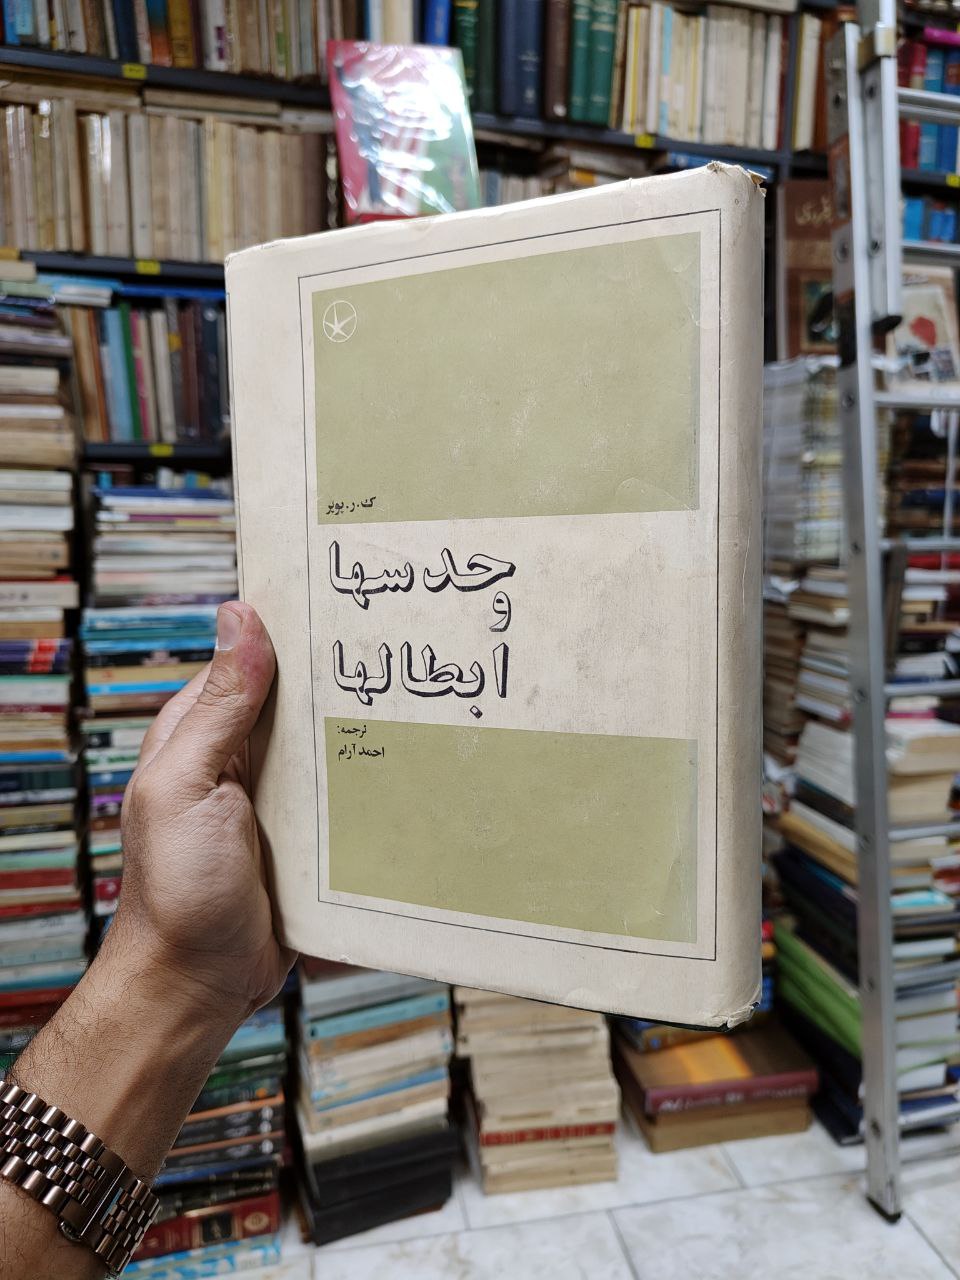 ک.ر.پوپر
حدسها
و
ابطالها
ترجمه:
احمد آرام